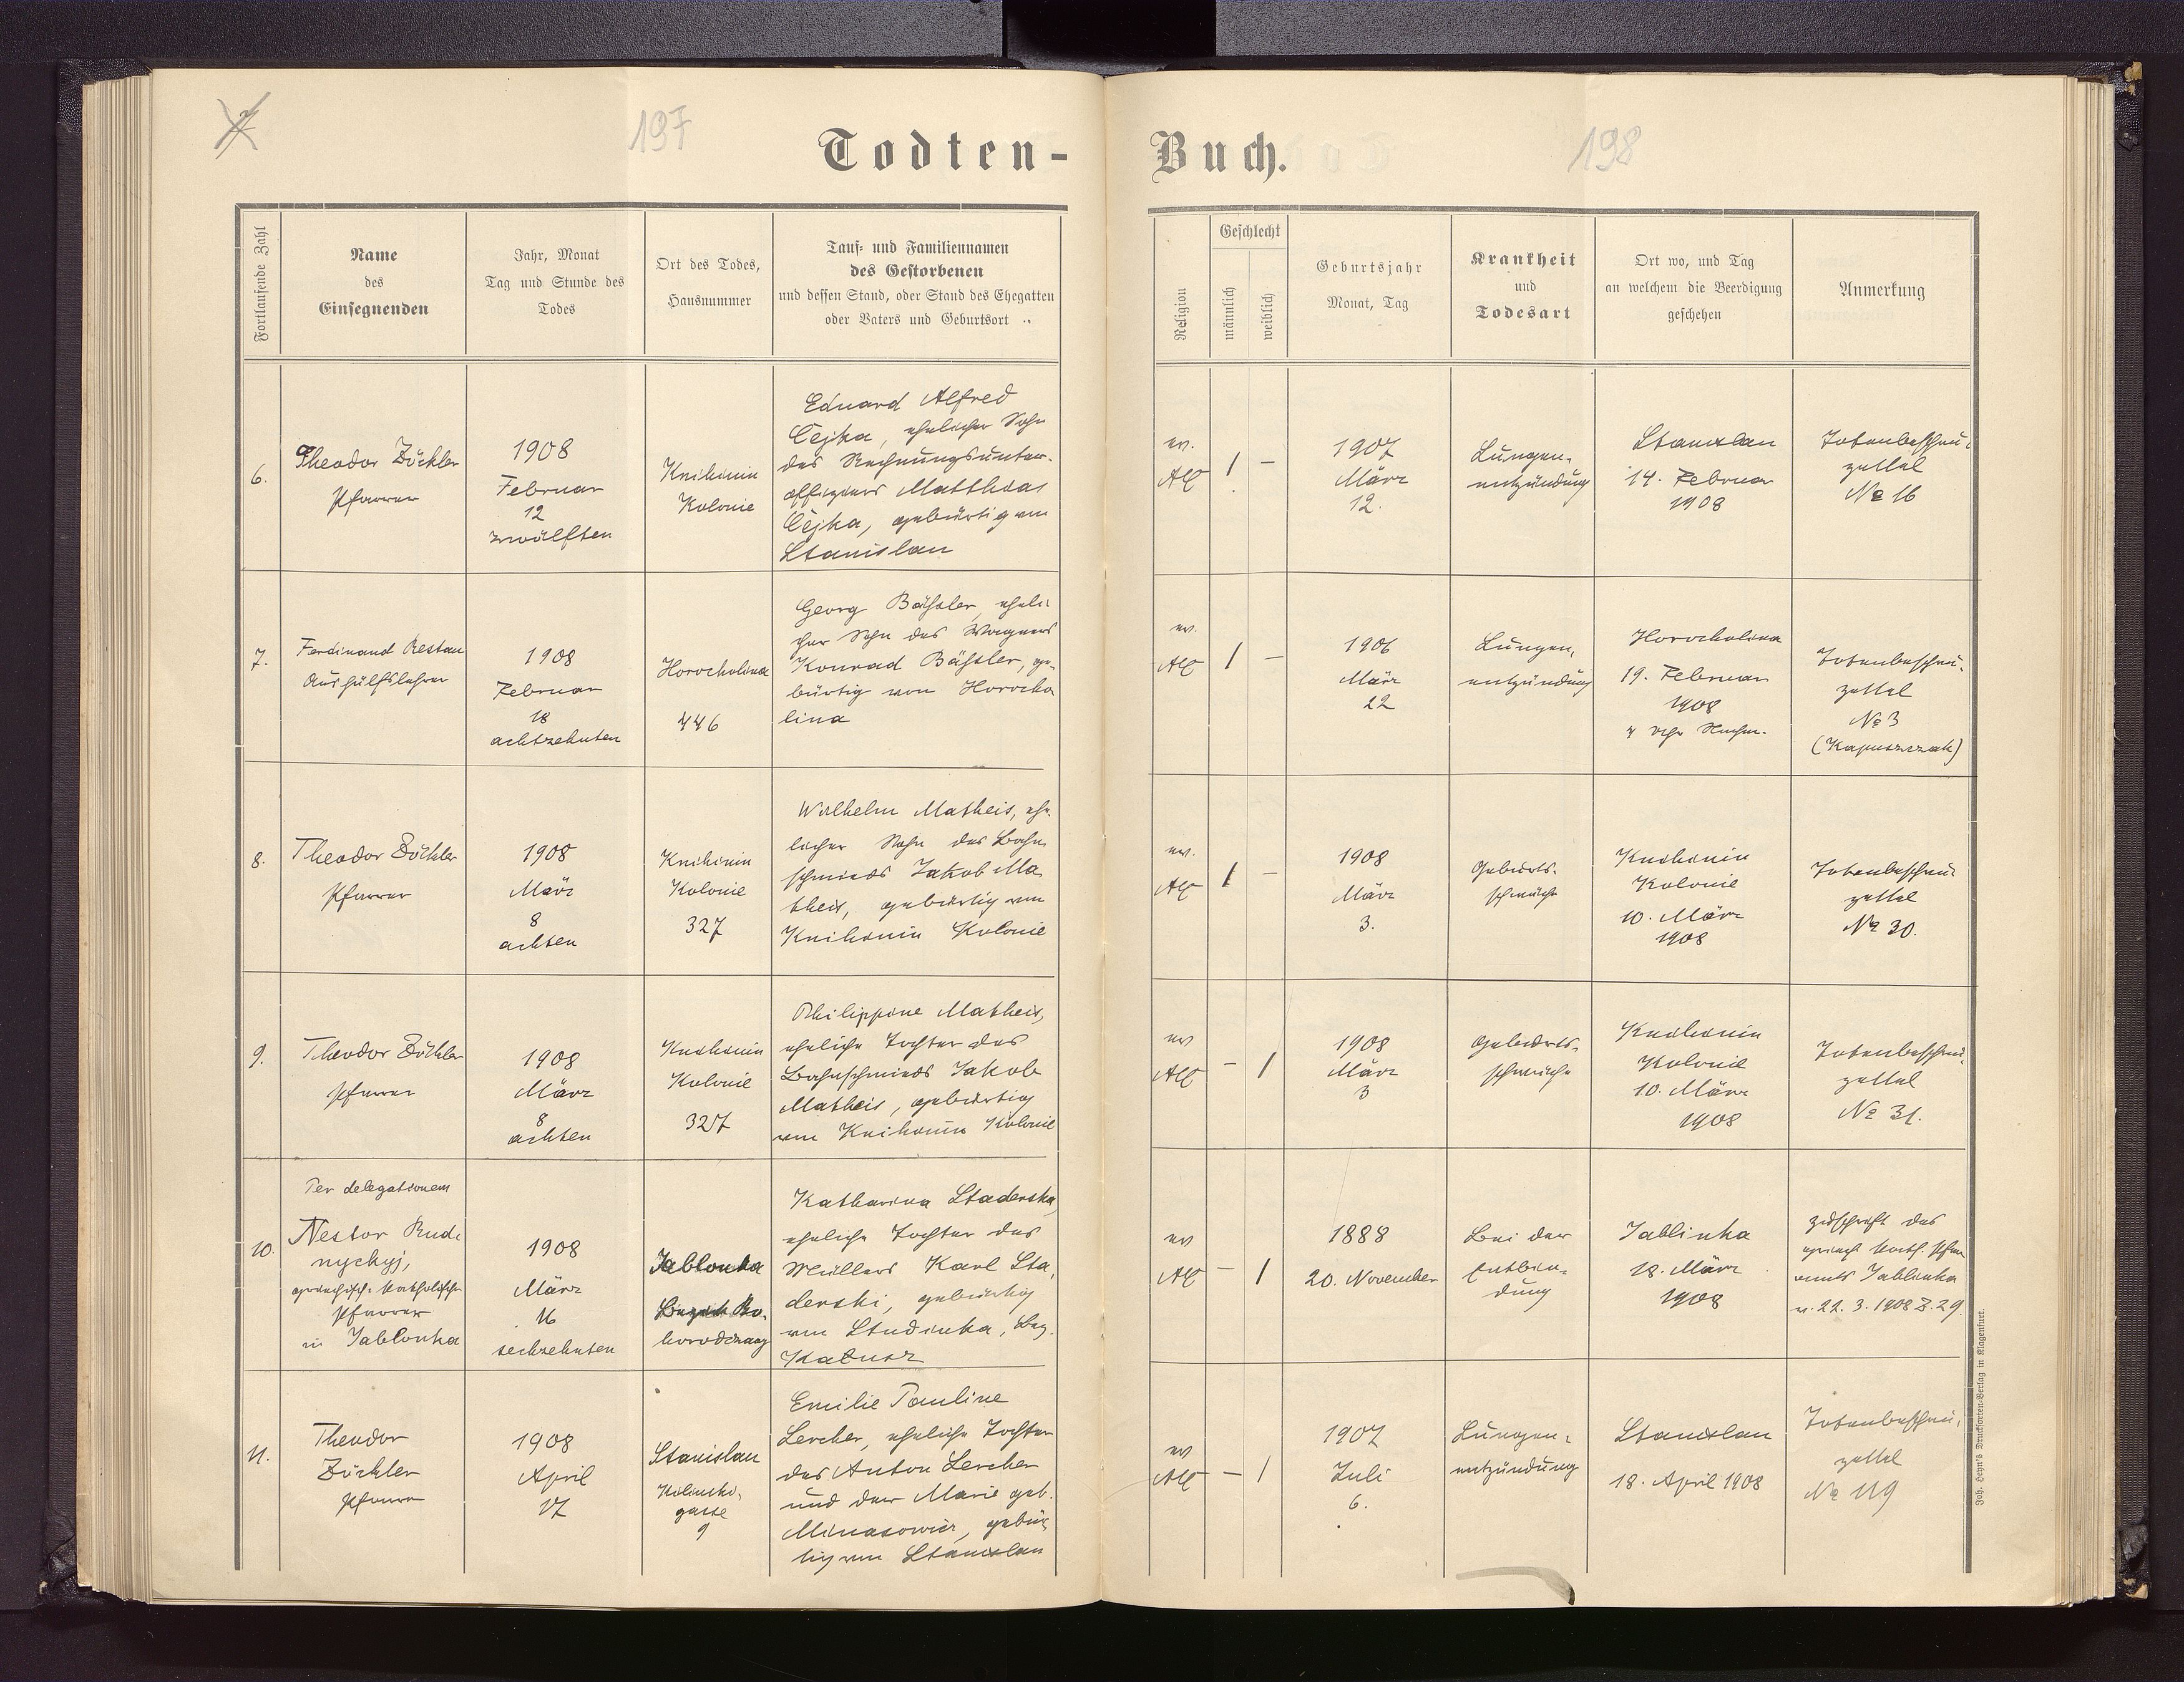 197
Todten-
Buch.
198
Fortlaufende Zahl
Name
des
Einsegnenden
Jahr, Monat
Tag und Stunde des
Todes
Ort des Todes,
Hausnummer
Tauf- und Familiennamen
des Gestorbenen
und dessen Stand, oder Stand des Ehegatten
oder Vaters und Geburtsort
Religion
Geschlecht
männlich
weiblich
Geburtsjahr
Monat, Tag
Krankheit
und
Todesart
Ort wo, und Tag
an welchem die Beerdigung
geschehen
Anmerkung
6.
Theodor Zöckler
Pfarrer
1908
Februar
12
zwölften
Knihinin
Kolonie
Eduard Alfred
Čejka, ehelicher Sohn
des Rechnungsunter-
offiziers Matthias
Čejka, gebürtig von
Stanislau
ev.
AC
1
–
1907
März
12.
Lungen-
entzündung
Stanislau
14. Februar
1908
Totenbeschau-
zettel
№ 16
7.
Ferdinand Restau
Aushülfslehrer
1908
Februar
18
achtzehnten
Horocholina
446
Georg Bäßler, eheli-
cher Sohn des Wagners
Konrad Bäßler, ge-
bürtig von Horocho
lina
ev.
AC
1
–
1906
März
22
Lungen-
entzündung
Horocholina
19. Februar
1908
4 Uhr Nachm.
Totenbeschau-
zettel
№ 3
(Kapuszczak)
8.
Theodor Zöckler
Pfarrer
1908
März
8
achten
Knihinin
Kolonie
327
Wilhelm Matheis, ehe-
licher Sohn des Bahn-
schmieds Jakob Ma-
theis, gebürtig von
Knihinin Kolonie
ev.
AC
1
–
1908
März
3.
Geburts-
schwäche
Knihinin
Kolonie
10. März
1908
Totenbeschau-
zettel
№ 30.
9.
Theodor Zöckler
Pfarrer
1908
März
8
achten
Knihinin
Kolonie
327
Philippine Matheis,
eheliche Tochter des
Bahnschmieds Jakob
Matheis, gebürtig
von Knihinin Kolonie
ev
AC
–
1
1908
März
3
Geburts-
schwäche
Knihinin
Kolonie
10. März
1908
Totenbeschau-
zettel
№ 31.
10.
Per delegationem
Nestor Rud-
nyckyj,
griechisch-katholischer
Pfarrer
in Jablonka
1908
März
16
sechzehnten
Jablonka
Bezirk Bo-
horodczany
Katharina Staderska,
eheliche Tochter des
Müllers Karl Sta-
derski, gebürtig
von Studinka, Bez.
Kałusz
ev
AC
–
1
1888
20. November
Bei der
Entbin-
dung
Jablinka
18. März
1908
Zuschrift des
griech. kath. Pfarr
amts Jablinka
v. 22. 3. 1908 Z. 29.
11.
Theodor
Zöckler
Pfarrer
1908
April
17
Stanislau
Kilinski-
gasse
9
Emilie Pauline
Lercher, eheliche Tochter
des Anton Lercher
und der Marie geb.
Minasowicz, gebür-
tig von Stanislau
ev
AC
–
1
1907
Juli
6.
Lungen-
entzündung
Stanislau
18. April 1908
Totenbeschau-
zettel
№ 119
Joh. Heyn's Drucksorten-Verlag in Klagenfurt.